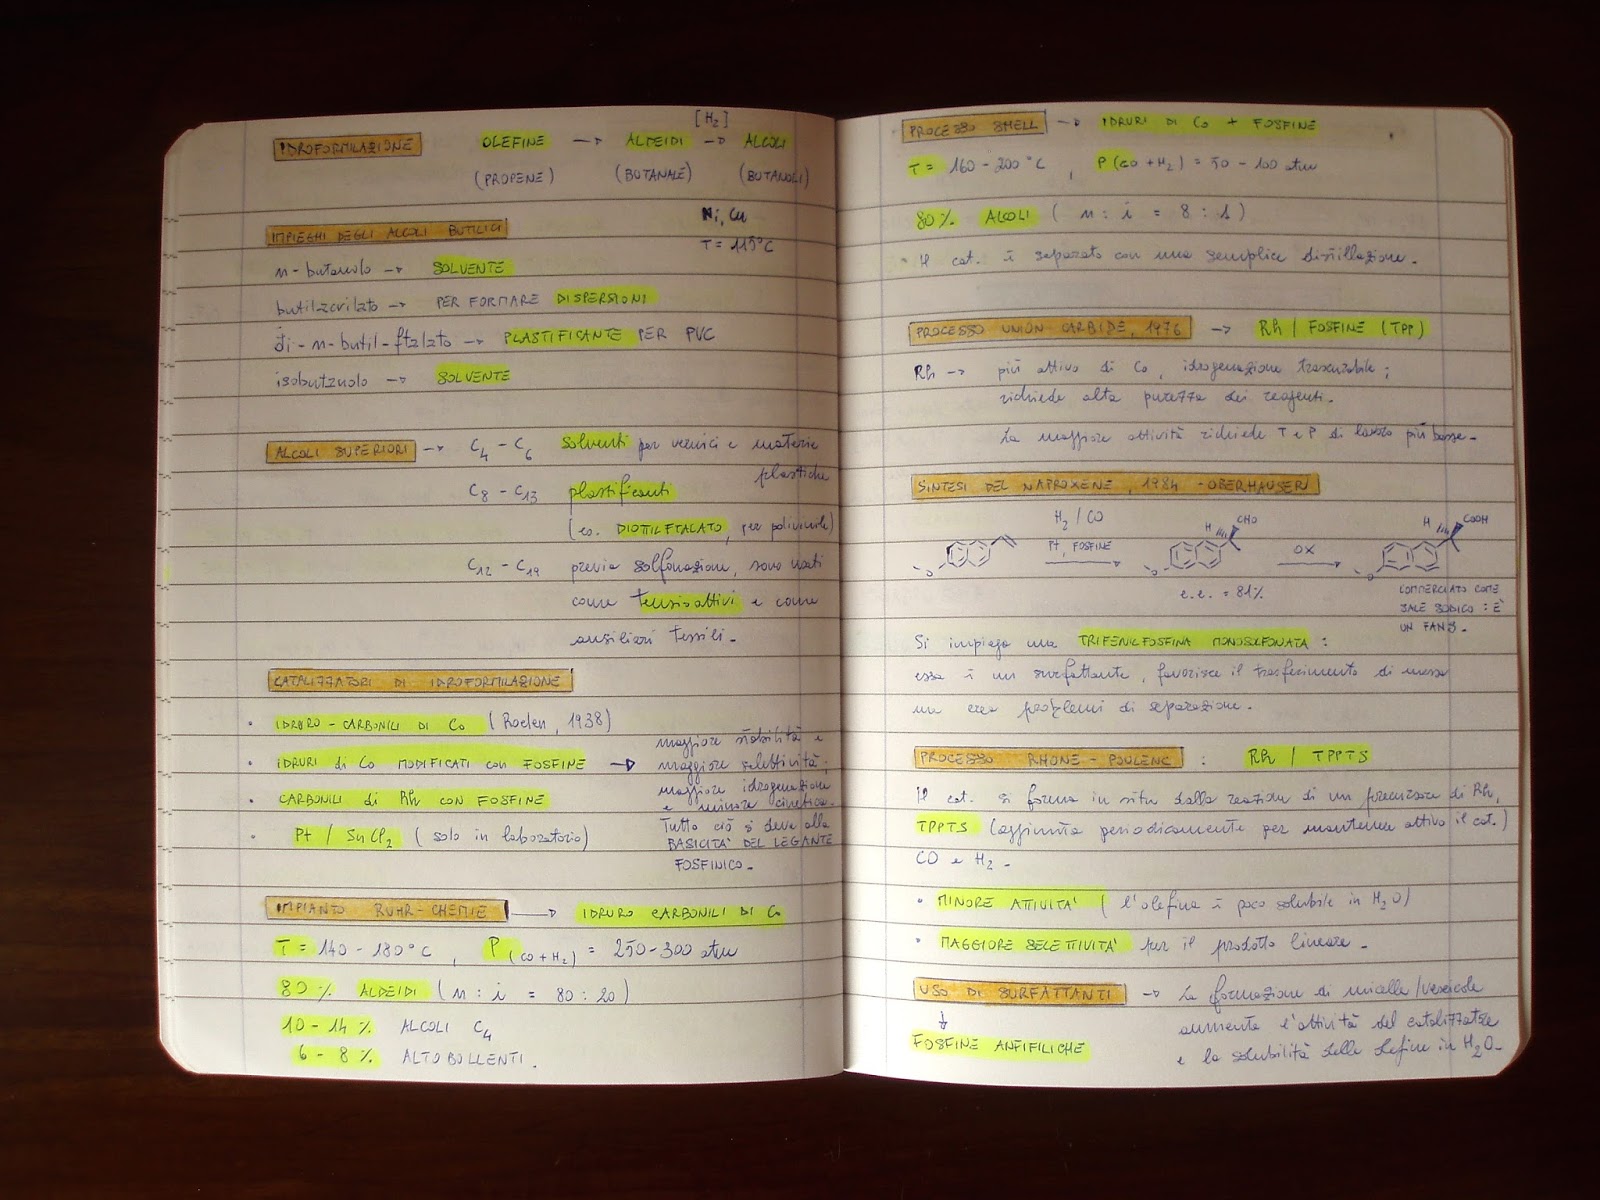 [H2]
IDROFORMILAZIONE OLEFINE → ALDEIDI → ALCOLI
(PROPENE) (BUTANALE) (BUTANOLI)
Ni, Cu
IMPIEGHI DEGLI ALCOLI BUTILICI
T = 115°C
n-butanolo → SOLVENTE
butilacrilato → PER FORMARE DISPERSIONI
di-n-butil-ftalato → PLASTIFICANTE PER PVC
isobutanolo → SOLVENTE
ALCOLI SUPERIORI → C4 - C6 solventi per vernici e materie
plastiche
C8 - C13 plastificanti
(es. DIOTTILFTALATO, per polivinile)
C12 - C19 previa solfonazione, sono usati
come tensioattivi e come
ausiliari tessili.
CATALIZZATORI DI IDROFORMILAZIONE
• IDRURO-CARBONILI DI Co (Roelen, 1938)
• IDRURI di Co MODIFICATI con FOSFINE → maggiore stabilità e
maggiore selettività,
maggiore idrogenazione
e minore cinetica.
• CARBONILI di Rh CON FOSFINE
• Pt / SnCl2 (solo in laboratorio)
Tutto ciò si deve alla
BASICITA' DEL LEGANTE
FOSFINICO.
IMPIANTO RUHR-CHEMIE → IDRURO CARBONILI DI Co
T = 140 - 180°C, P(CO+H2) = 250-300 atm
80% ALDEIDI (n : i = 80 : 20)
10 - 14% ALCOLI C4
6 - 8% ALTOBOLLENTI.
PROCESSO SHELL → IDRURI DI Co + FOSFINE
T = 160 - 200°C, P(CO+H2) = 50 - 100 atm
80% ALCOLI (n : i = 8 : 1)
• Il cat. è separato con una semplice distillazione.
PROCESSO UNION CARBIDE, 1976 → Rh / FOSFINE (TPP)
Rh → più attivo di Co, idrogenazione trascurabile;
richiede alta purezza dei reagenti.
La maggiore attività richiede T e P di lavoro più basse.
SINTESI DEL NAPROXENE, 1984 - OBERHAUSER
H2 / CO
Pt, FOSFINE
H CHO
OX
H COOH
O O O
e.e. = 81%
COMMERCIATO COME
SALE SODICO: È
UN FANS.
Si impiega una TRIFENILFOSFINA MONOSOLFONATA:
essa è un surfattante, favorisce il trasferimento di massa
ma crea problemi di separazione.
PROCESSO RHONE-POULENC : Rh / TPPTS
Il cat. si forma in situ dalla reazione di un precursore di Rh,
TPPTS (aggiunta periodicamente per mantenere attivo il cat.)
CO e H2.
• MINORE ATTIVITA' (l'olefina è poco solubile in H2O)
• MAGGIORE SELETTIVITA' per il prodotto lineare.
USO DI SURFATTANTI → La formazione di micelle/vescicole
aumenta l'attività del catalizzatore
e la solubilità delle olefine in H2O.
↓
FOSFINE ANFIFILICHE